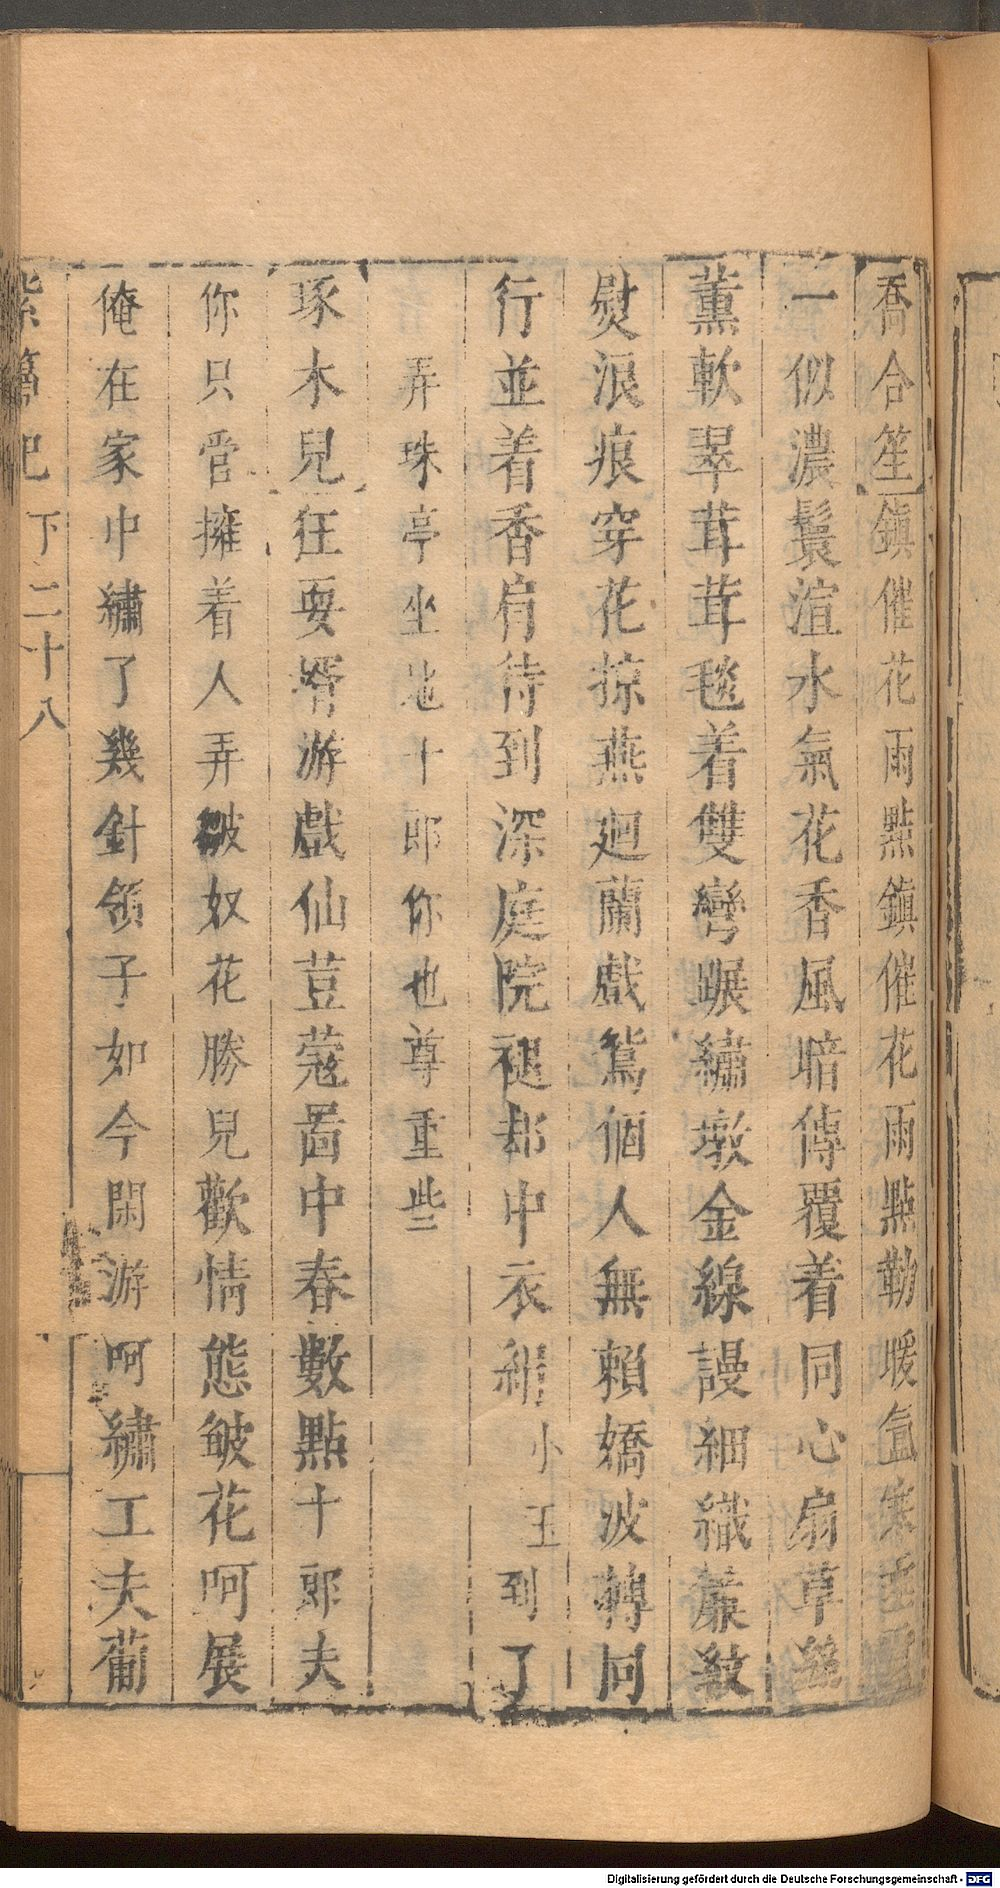 喬合笙鎮催花雨點鎮催花雨點勒暖氳寒
一似濃鬟渲水氣花香風暗傳覆着同心扇草
薰軟翠茸茸毯着雙彎蹍繡墩金線謾細織簾紋
熨浪痕穿花掠燕廻蘭戲鴛個人無賴嬌波轉同
行並着香肩待到深庭院褪却中衣絹小玉到了
弄珠亭坐地十郎你也尊重些
琢木兒狂耍婿游戲仙荳蔻啚中春數點十郎夫
你只管擁着人弄皺奴花勝兒歡情態皱花呵展
俺在家中繡了幾針領子如今閑游呵繡工夫葡
紫簫记 下 二十八
Digitalisierung gefördert durch die Deutsche Forschungsgemeinschaft - DFG